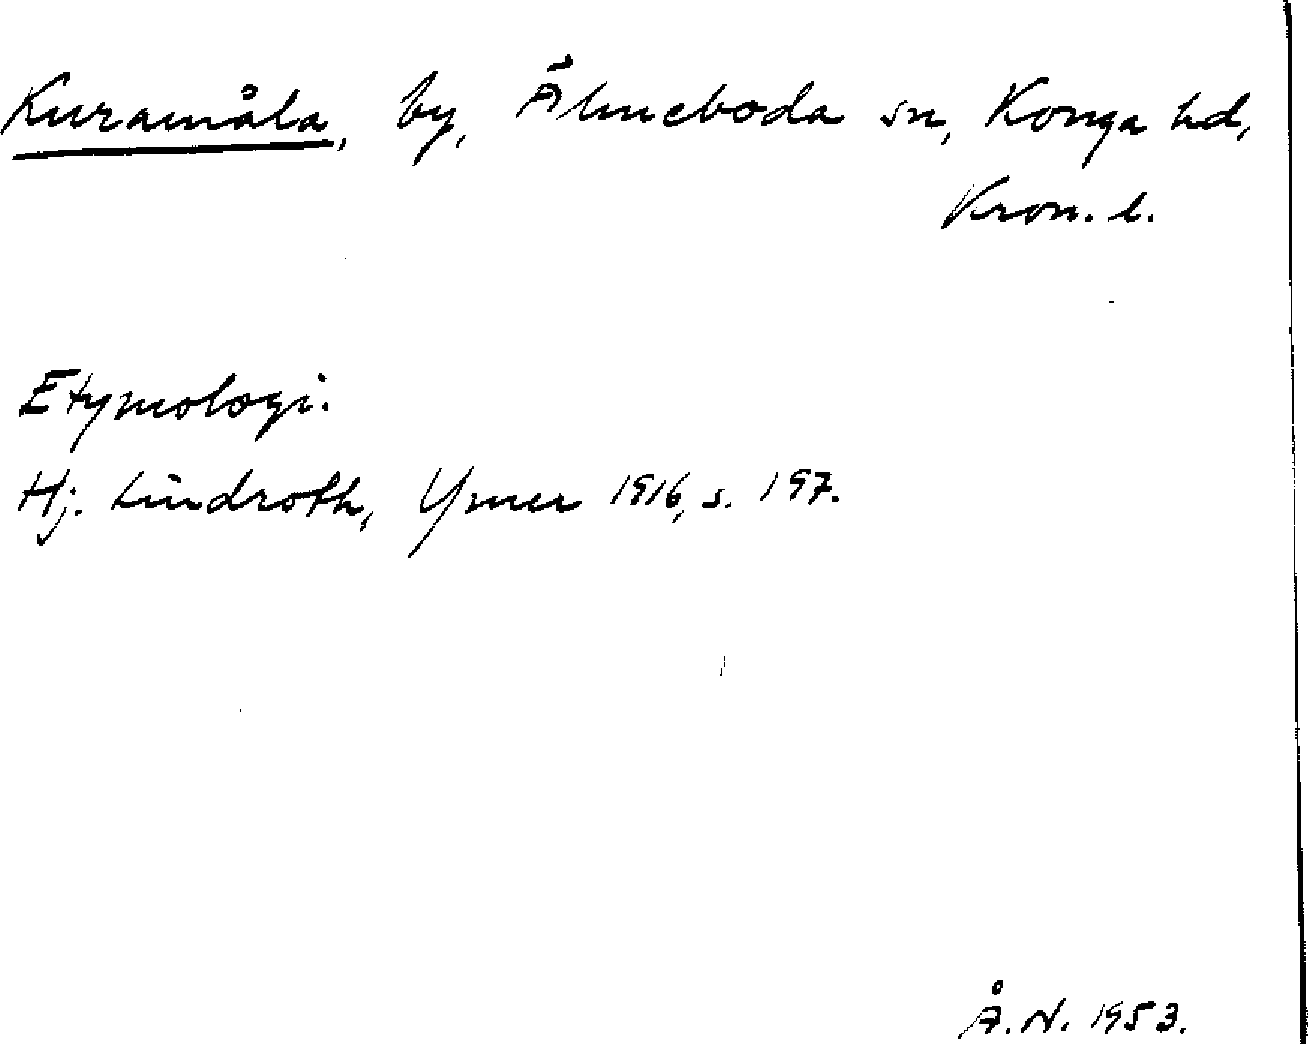 Kuramåla, by, Älmeboda sn, Konga hd,
Kron. l.
Etymologi.
Hj. Lindroth, Ymer 1916, s. 197.
Å.N. 1953.